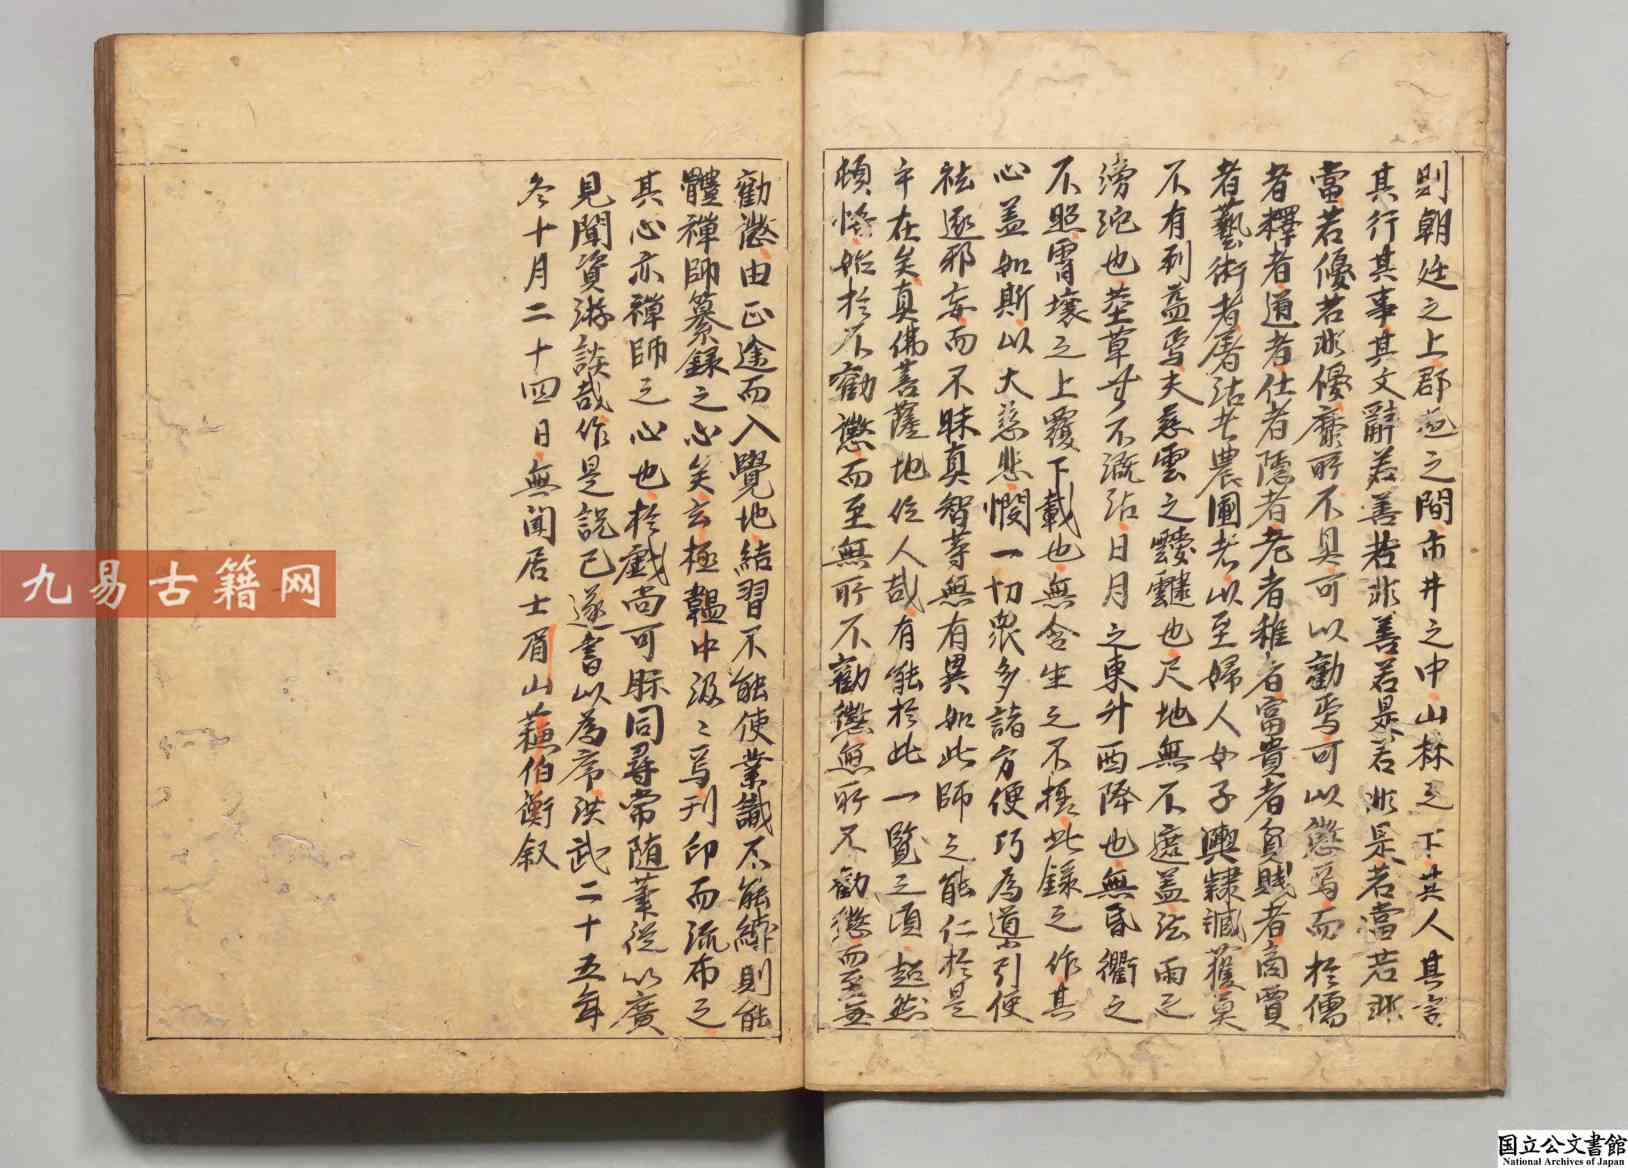 則朝廷之上郡邑之間市井之中山林之下其人其言
其行其事其文辭若善若非善若是若非是若當若非
當若優若非優靡所不具可以勸焉可以懲焉而於儒
者釋者道者仕者隱者老者稚者富貴者貧賤者商賈
者藝術者屠沽者農圃者以至婦人女子輿隸臧獲莫
不有利益焉夫慈雲之靉靆也尺地無不遮蓋法雨之
滂沱也莖草無不溉沾日月之東升西降也無昏衢之
不照霄壤之上覆下載也無含生之不極此錄之作其
心蓋如斯以大慈悲憫一切眾多諸方便巧為導引使
祛逐邪妄而不昧真智等無有異如此師之能仁於是
乎在矣真佛菩薩地位人哉有能於此一覽之頃超然
頓悟始於不勸懲而至無所不勸懲無所不勸懲而至無
勸懲由正途而入覺地結習不能使業識不能縛則能
體禪師纂錄之心矣玄極韞中汲〻焉刊印而流布之
其心亦禪師之心也於戲尚可眎同尋常随筆從以廣
見聞資游談哉作是説已遂書以為序洪武二十五年
冬十月二十四日無聞居士眉山蘓伯衡叙
九易古籍网
国立公文書館
National Archives of Japan